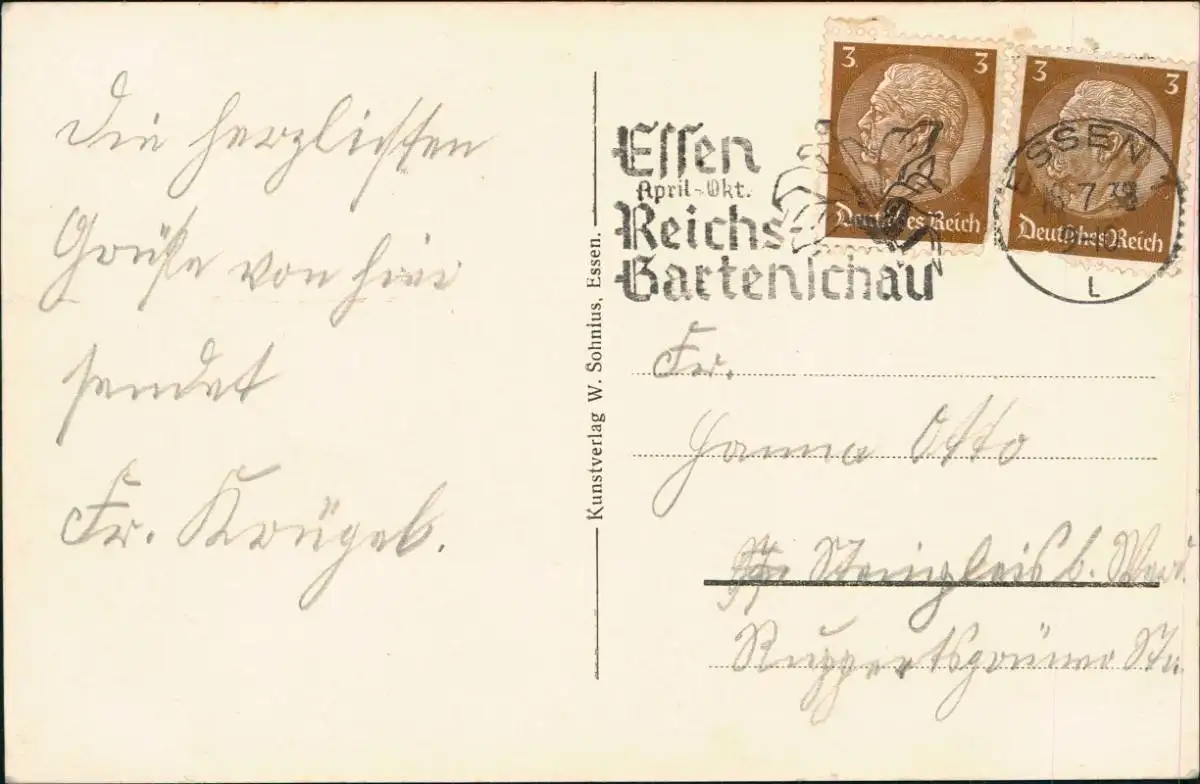 Die herzlichsten
Grüße von hier
sendet
Fr. Krügel.
Kunstverlag W. Sohnius, Essen.
Essen
April-Okt.
Reichs-
Gartenschau
3 3
Deutsches Reich
3 3
Deutsches Reich
ESSEN 1
7.38
L
Fr.
Hanna Otto
Steinpleis b. Werd.
Ruppertsgrüner Str.